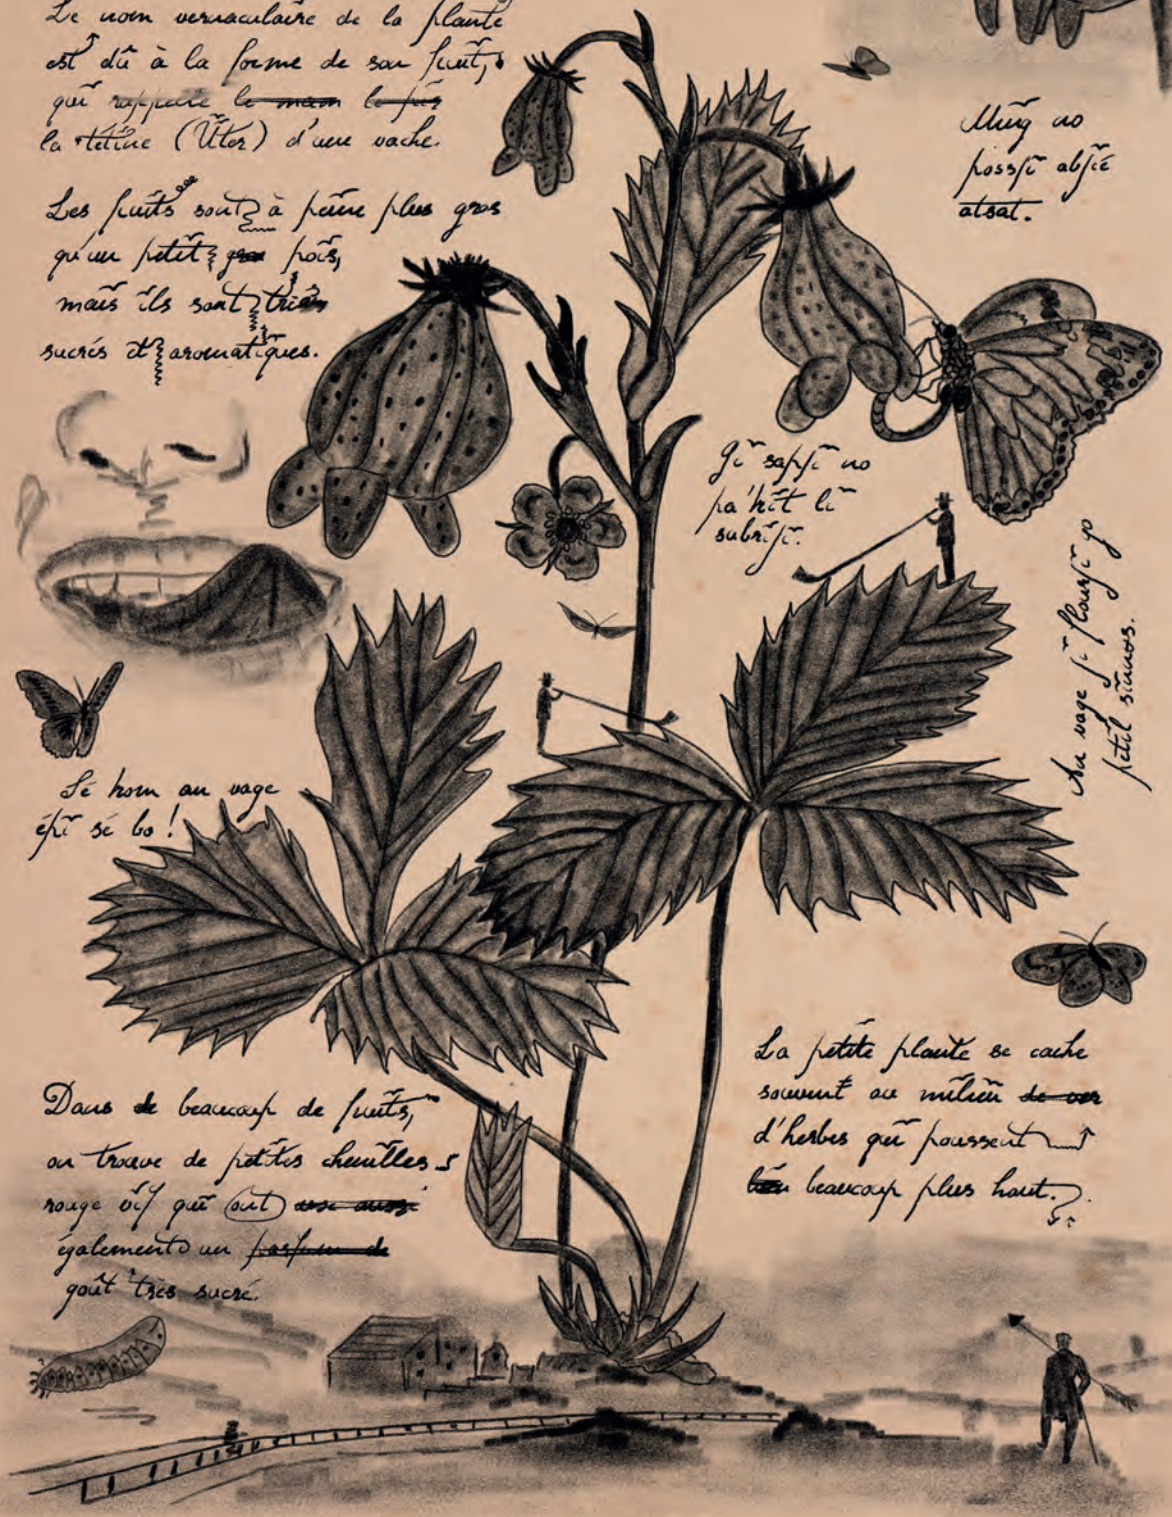 Le nom vernaculaire de la plante
est dû à la forme de son fruit,
qui rappelle le mam le pis
la tétine (Üter) d'une vache.
Les fruits sont à peine plus gros
qu'un petit gros pois,
mais ils sont très
sucrés et aromatiques.
Mĩng no
possſĩ abſĩé
atsat.
Gĩ sapſĩ no
pa'hĩt lĩ
subrĩſĩ.
An vage ſĩ flourſĩ go
petĩl sĩnnos.
Sé horn an vage
épĩ sé bo!
La petite plante se cache
souvent au milieu
d'herbes qui poussent
beaucoup plus haut.
Dans de beaucoup de fruits,
on trouve de petites chenilles
rouge vif qui ont eux aussi
également un parfum de
goût très sucré.